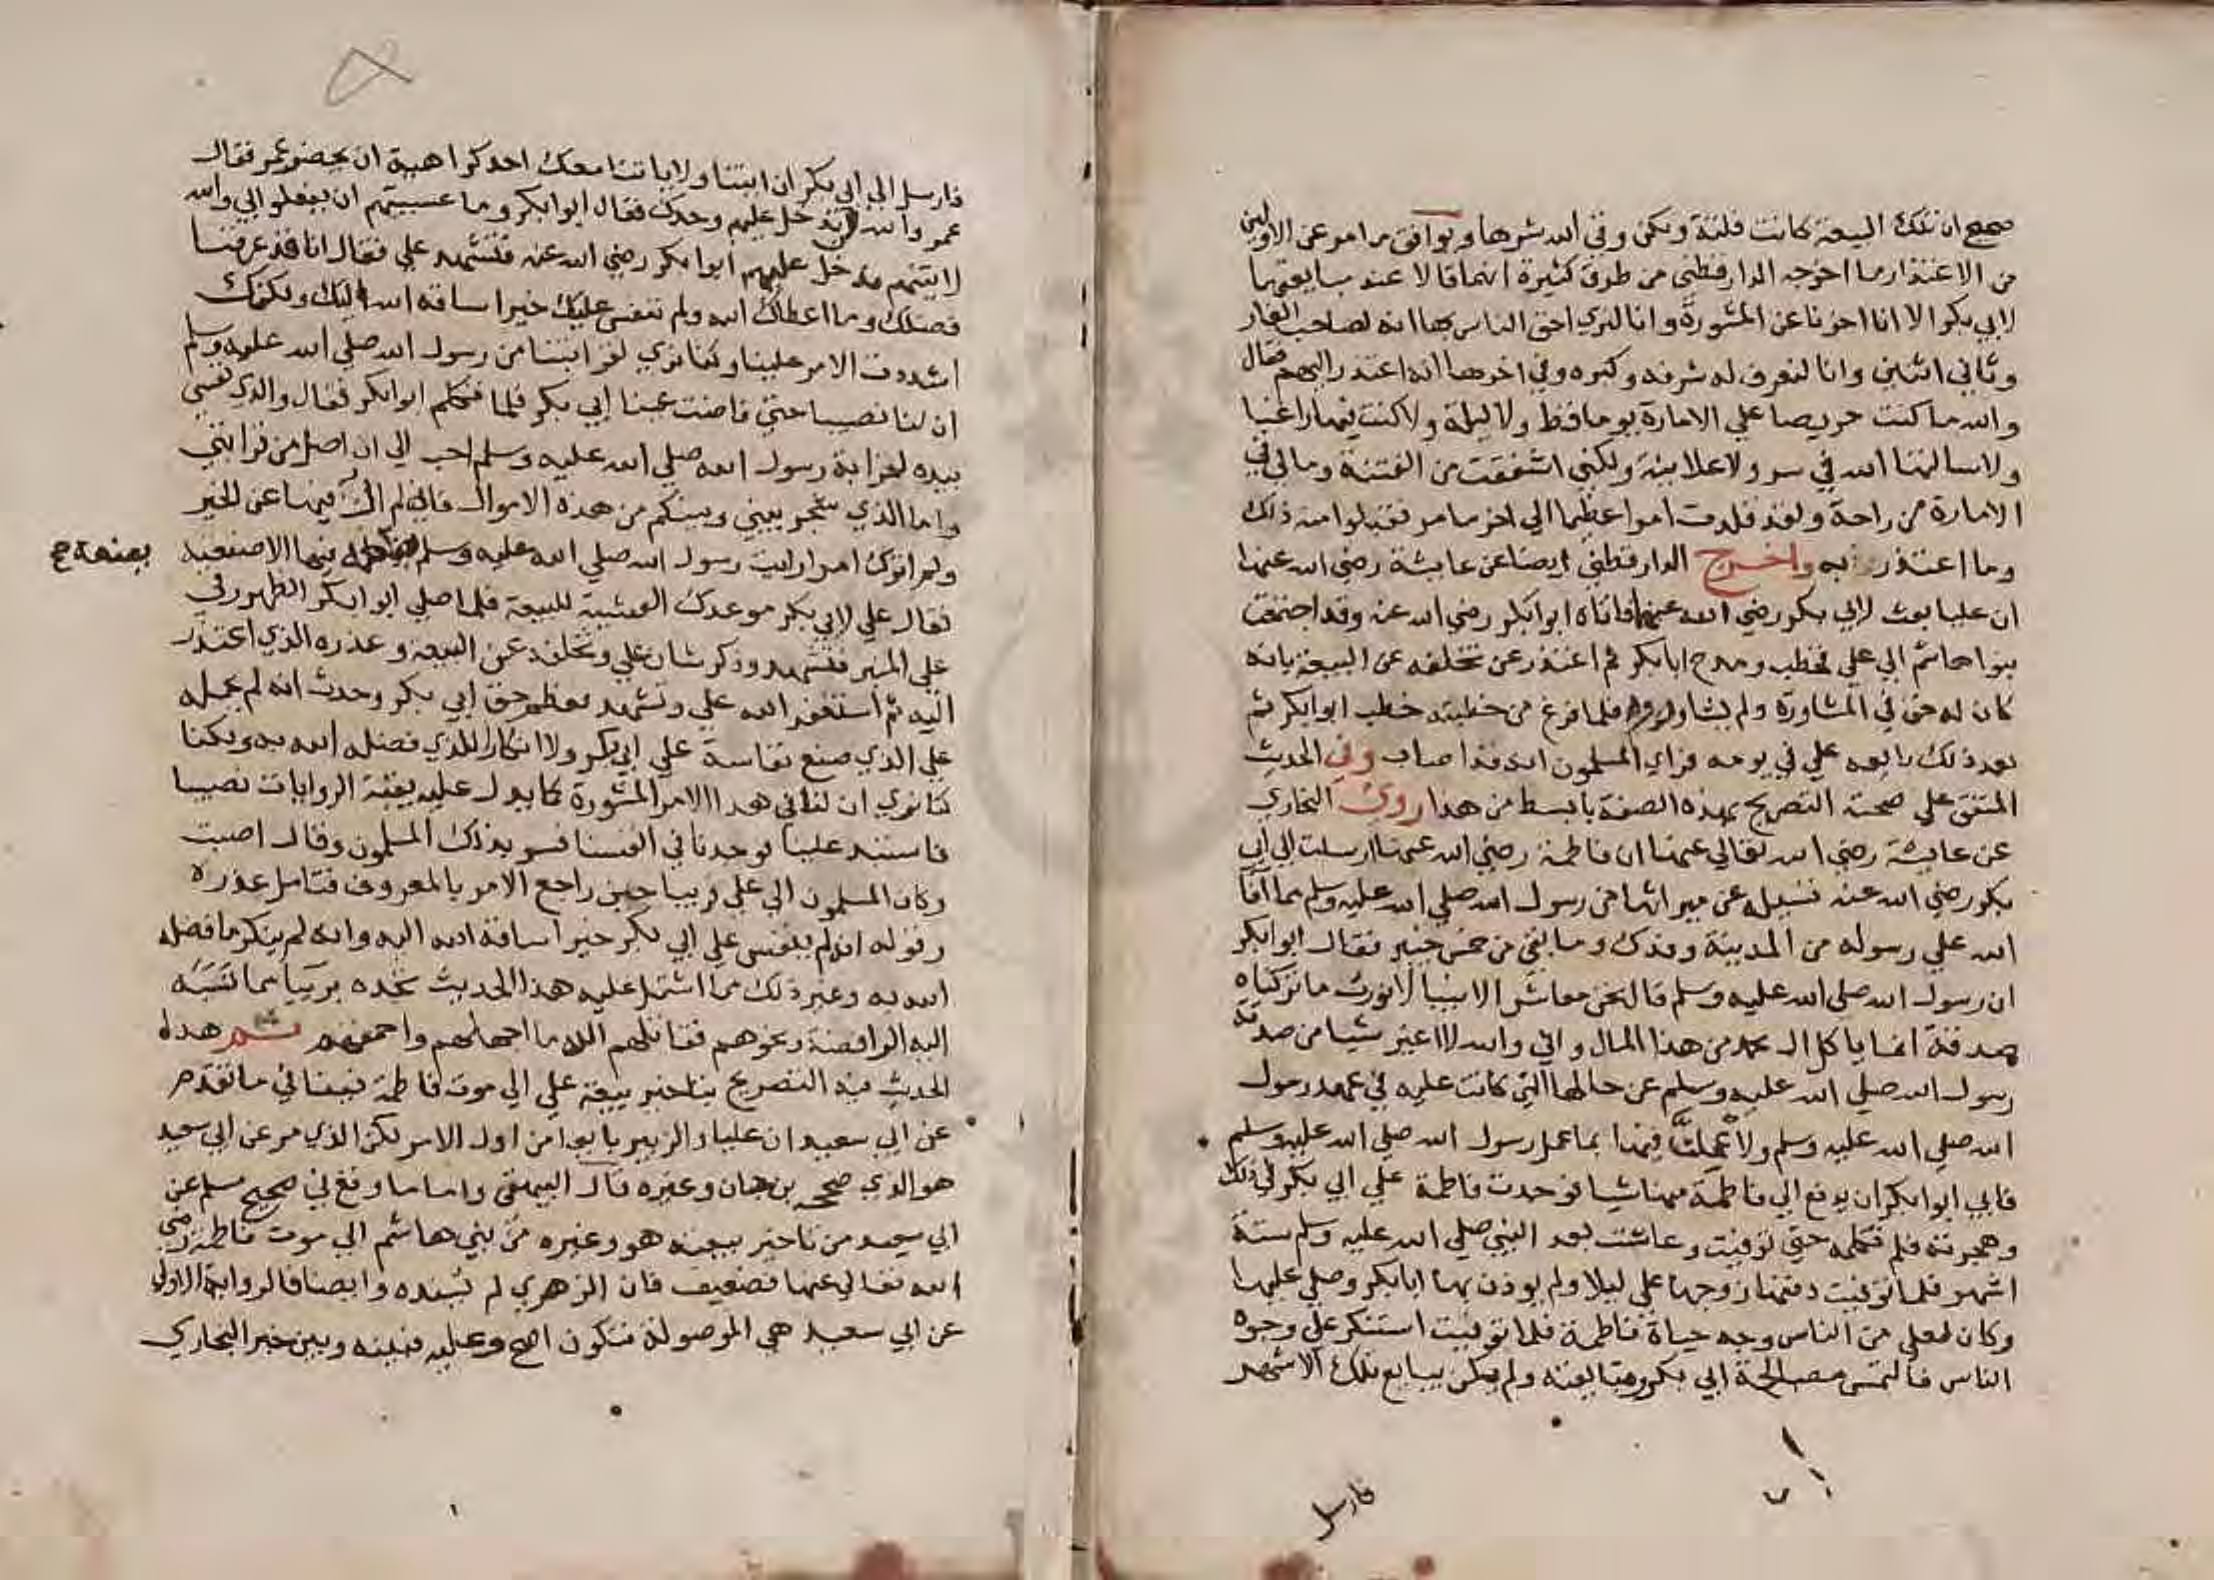 صحيح ان تلك البيعة كانت فلتة ولكن وقى الله شرها ويوافق ما مر عن الاولين
من الاعتذار ما اخرجه الدارقطني من طرق كثيرة انهما قالا عند مبايعتهما
لابي بكر الا انا اخرنا عن المشورة وانا لنري احق الناس بها انه لصاحب الغار
وثاني اثنين وانا لنعرف له شرفه وكبره وفي اخرها انه اعتذر اليهم فقال
والله ما كنت حريصا علي الامارة يوما قط ولا ليلة ولا كنت فيها راغبا
ولا سالتها الله في سر ولا علانية ولكني اشفقت من الفتنة وما لي في
الامارة من راحة ولقد قلدت امرا عظيما الي اخر ما مر فقبلوا منه ذلك
وما اعتذر به واخرج الدارقطني ايضا عن عايشة رضي الله عنها
ان عليا بعث لابي بكر رضي الله عنهما فاتاه ابوا بكر رضي الله عنه وقد اجتمعت
بنوا هاشم الي علي فخطب ومدح ابا بكر ثم اعتذر عن تخلفه عن البيعة بانه
كان له حق في المشاورة ولم يشاور فلما فرغ من خطبته خطب ابوا بكر ثم
بعد ذلك بايعه علي في يومه فراي المسلمون انه قد اصاب وفي الحديث
المتفق علي صحته التصريح بهذه الصفة بابسط من هذا روي البخاري
عن عايشة رضي الله تعالي عنها ان فاطمة رضي الله عنها ارسلت الي ابي
بكر رضي الله عنه تسيله عن ميراثها من رسول الله صلي الله عليه وسلم مما افا
الله علي رسوله من المدينة وفدك وما بقي من خمس خيبر فقال ابوا بكر
ان رسول الله صلي الله عليه وسلم قال نحن معاشر الانبيا لا نورث ما تركناه
صدقة انما ياكل ال محمد من هذا المال واني والله لا اغير شيا من صدقة
رسول الله صلي الله عليه وسلم عن حالها التي كانت عليه في عهد رسول
الله صلي الله عليه وسلم ولا عملن فيها بما عمل رسول الله صلي الله عليه وسلم
فابي ابوا بكر ان يدفع الي فاطمة منها شيا فوجدت فاطمة علي ابي بكر في ذلك
وهجرته فلم تكلمه حتي توفيت وعاشت بعد النبي صلي الله عليه وسلم ستة
اشهر فلما توفيت دفنها زوجها علي ليلا ولم يوذن بها ابا بكر وصلي عليها
وكان لعلي من الناس وجه حياة فاطمة فلما توفيت استنكر علي وجوه
الناس فالتمس مصالحة ابي بكر ومبايعته ولم يكن يبايع تلك الاشهر
فارسل
فارسل الي ابي بكر ان ايتنا ولا ياتنا معك احد كراهية ان يحضر عمر فقال
عمر والله لا تدخل عليهم وحدك فقال ابوا بكر وما عسيتهم ان يفعلوا بي والله
لاتينهم فدخل عليهم ابوا بكر رضي الله عنه فتشهد علي فقال انا قد عرفنا
فضلك وما اعطاك الله ولم ننفس عليك خيرا ساقه الله اليك ولكنك
استبددت الامر علينا وكنا نري لقرابتنا من رسول الله صلي الله عليه وسلم
ان لنا نصيبا حتي فاضت عينا ابي بكر فلما تكلم ابوا بكر فقال والذي نفسي
بيده لقرابة رسول الله صلي الله عليه وسلم احب الي ان اصل من قرابتي
واما الذي شجر بيني وبينكم من هذه الاموال فاني لم ال فيها عن الخير
ولم اترك امرا رايت رسول الله صلي الله عليه وسلم فيها الا صنعته
يصنعه صح
فقال علي لابي بكر موعدك العشية للبيعة فلما صلي ابوا بكر الظهر رقي
علي المنبر فتشهد وذكر شان علي وتخلفه عن البيعة وعذره الذي اعتذر
اليه ثم استغفر الله علي وتشهد بعظم حق ابي بكر وحدث انه لم يحمله
علي الذي صنع نفاسة علي ابي بكر ولا انكارا للذي فضله الله به ولكنا
كنا نري ان لنا في هذا الامر المشورة كما يدل عليه بقية الروايات نصيبا
فاستبد علينا فوجدنا في انفسنا فسر بذلك المسلمون وقال اصبت
وكان المسلمون الي علي قريبا حين راجع الامر بالمعروف فتامل عذره
وقوله انه لم ينفس علي ابي بكر خيرا ساقه الله اليه وانه لم ينكر ما فضله
الله به وغير ذلك مما اشتمل عليه هذا الحديث تجده بريا مما نسبه
اليه الرافضة ونحوهم فقاتلهم الله ما اجهلهم واحمقهم ثم هذا
الحديث فيه التصريح بتاخير بيعة علي الي موت فاطمة فينافي ما تقدم
عن ابي سعيد ان عليا والزبير بايعا من اول الامر لكن الذي مر عن ابي سعيد
هو الذي صححه بن حبان وغيره قال البيهقي واما ما وقع في صحيح مسلم عن
ابي سعيد من تاخير بيعته هو وغيره من بني هاشم الي موت فاطمة رضي
الله تعالي عنها فضعيف فان الزهري لم يسنده وايضا فالرواية الاولي
عن ابي سعيد هي الموصولة فتكون اصح وعليه فبينه وبين خبر البخاري